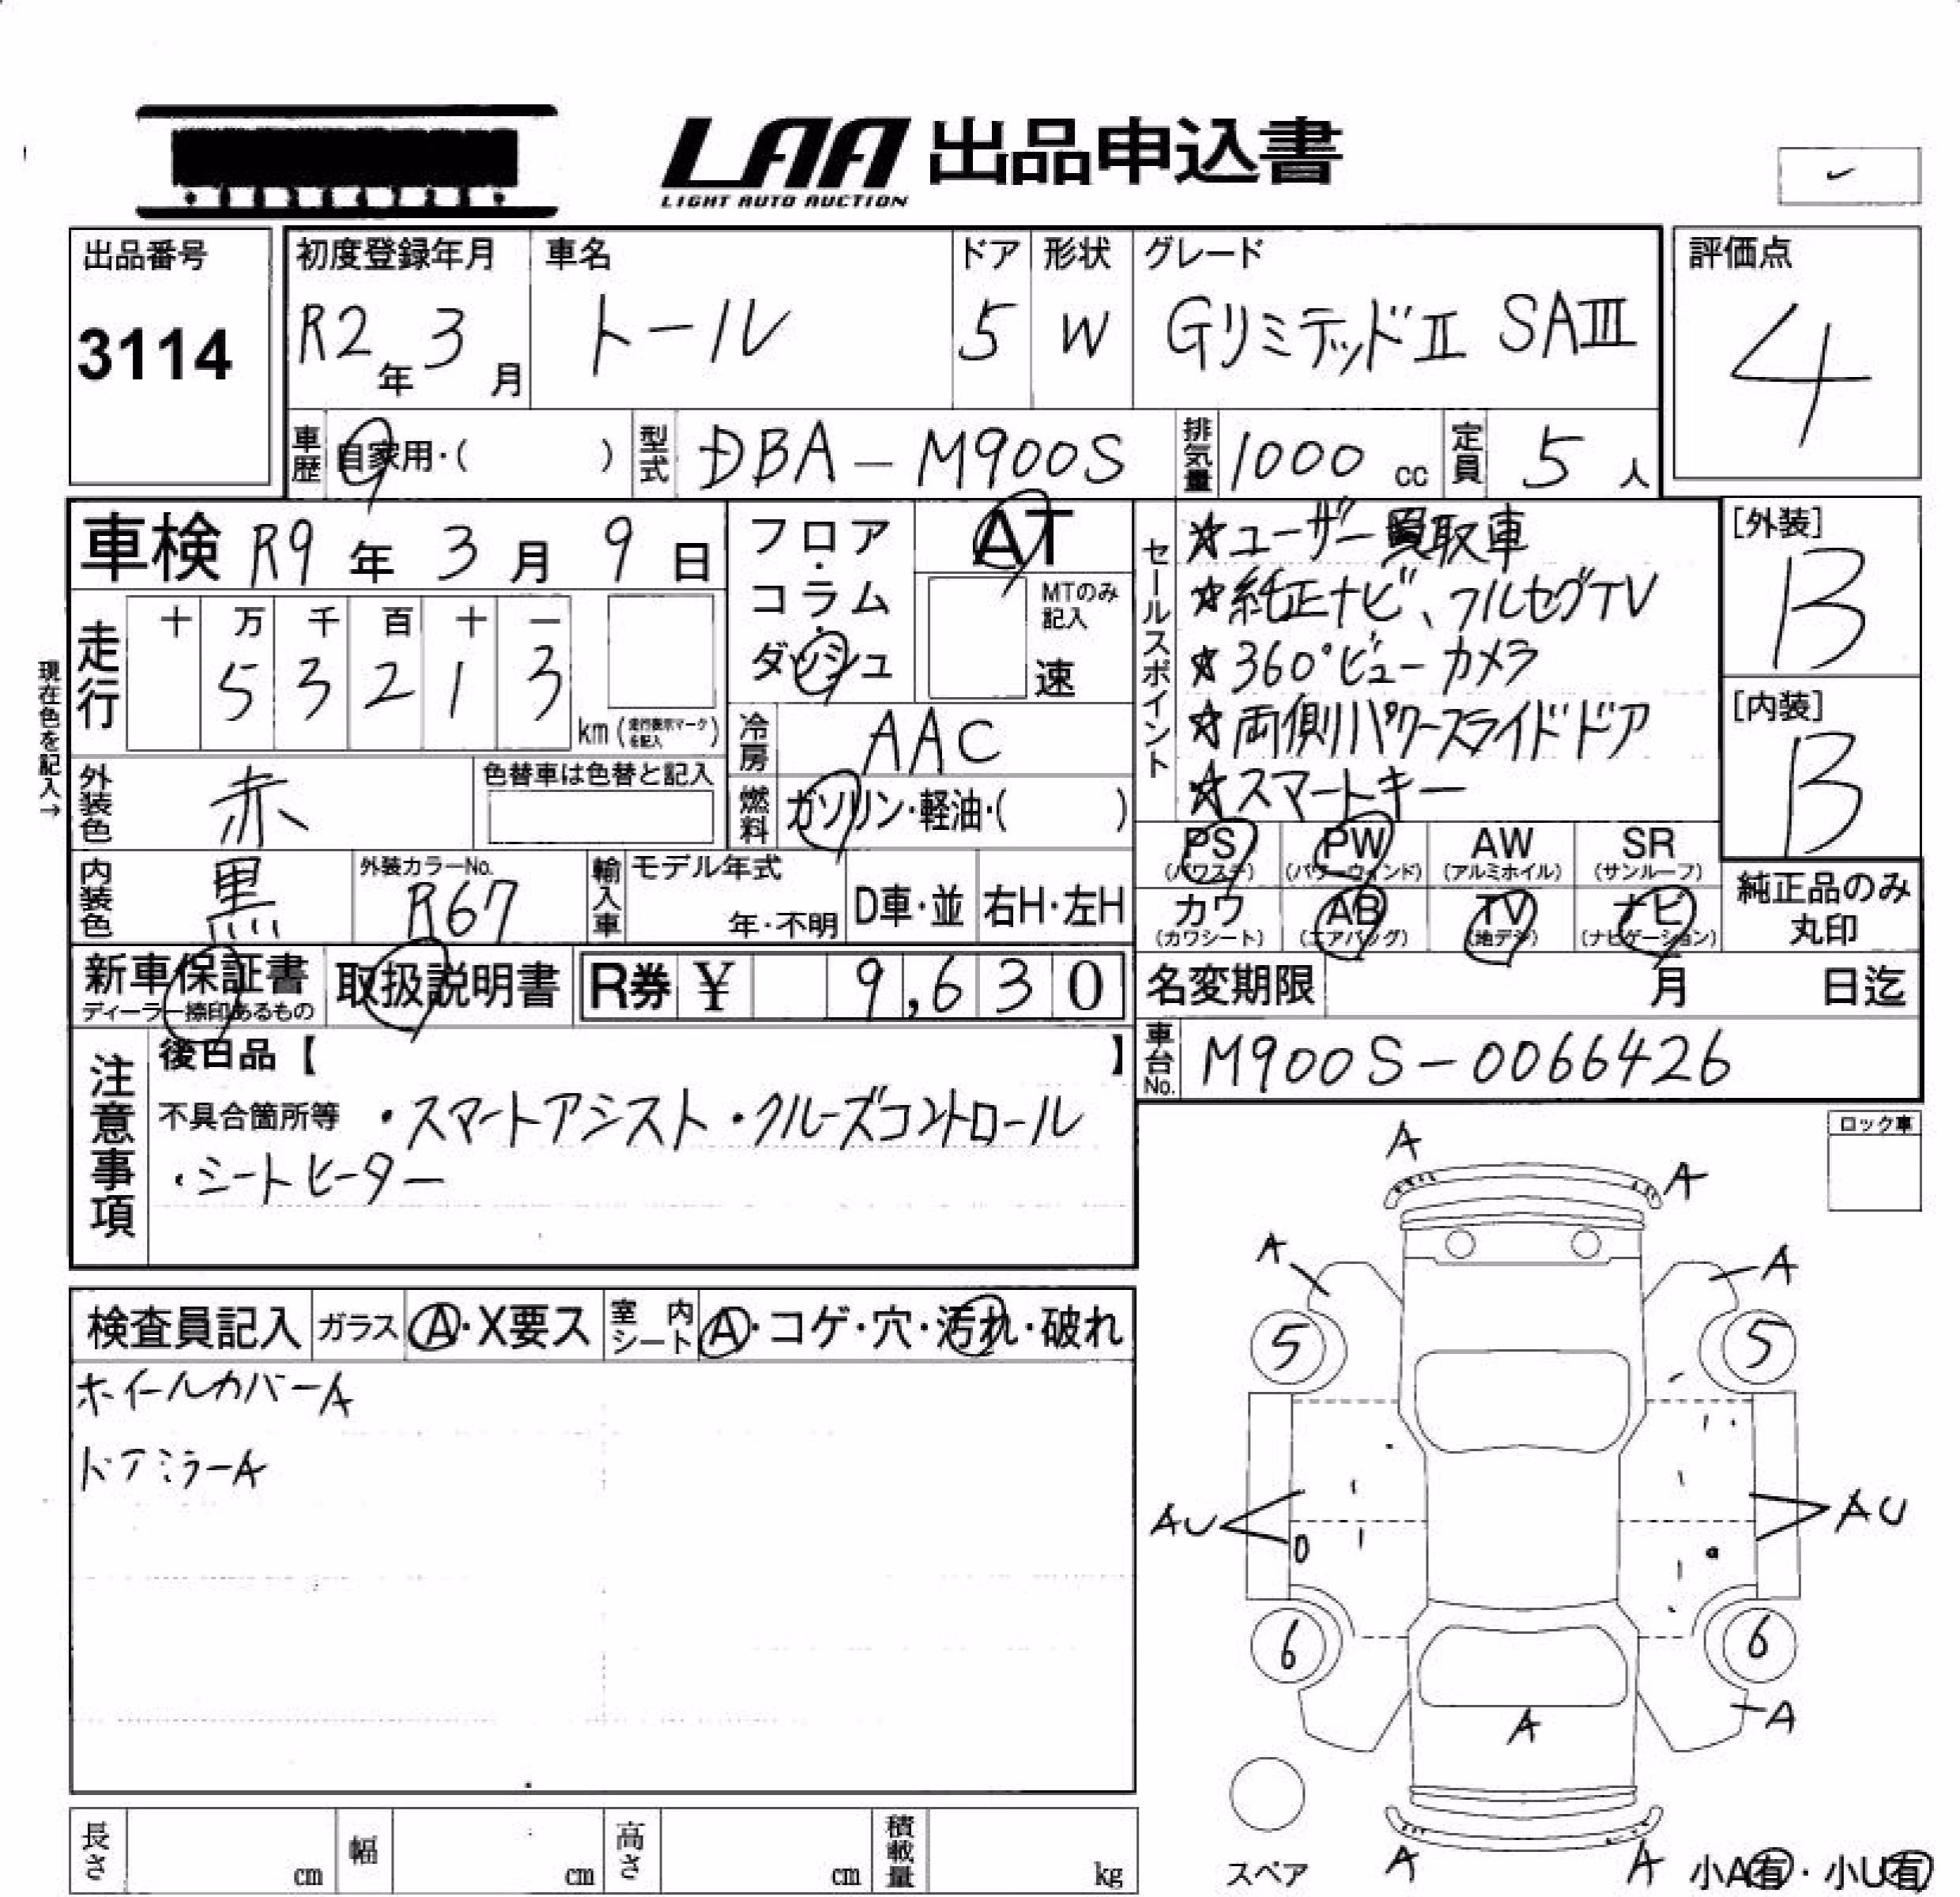 LAA 出品申込書
LIGHT AUTO AUCTION
出品番号
3114
初度登録年月
R2年3月
車名
トール
ドア
5
形状
W
グレード
Gリミテッド II SAIII
評価点
4
車歴
自家用・( )
型式
DBA-M900S
排気量
1000 cc
定員
5 人
車検 R9年3月9日
フロア・コラム・ダッシュ
AT
MTのみ記入
速
セールスポイント
☆ユーザー買取車
☆純正ナビ、フルセグTV
☆360°ビューカメラ
☆両側パワースライドドア
☆スマートキー
[外装]
B
[内装]
B
現在色を記入→
走行
十 万 千 百 十 一
5 3 2 1 3
km (走行表示マークを記入)
冷房
AAC
外装色
赤
色替車は色替と記入
燃料
ガソリン・軽油・( )
PS
(パワステ)
PW
(パワーウィンド)
AW
(アルミホイル)
SR
(サンルーフ)
内装色
黒
外装カラーNo.
R67
輸入車
モデル年式
年・不明
D車・並
右H・左H
カワ
(カワシート)
AB
(エアバッグ)
TV
(地デジ)
ナビ
(ナビゲーション)
純正品のみ
丸印
新車保証書
ディーラー捺印あるもの
取扱説明書
R券 ¥ 9,630
名変期限
月 日迄
車台No.
M900S-0066426
注意事項
後日品【 】
不具合箇所等 ・スマートアシスト・クルーズコントロール
・シートヒーター
ロック車
検査員記入
ガラス
A・X要ス
室内シート
A・コゲ・穴・汚れ・破れ
ホイールカバーA
ドアミラーA
A
A
A
A
5
5
AU
AU
6
6
A
A
A
A
スペア
小A有・小U有
長さ
cm
幅
cm
高さ
cm
積載量
kg